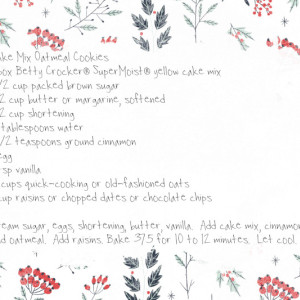 ake Mix Oatmeal Cookies
box Betty Crocker® SuperMoist® yellow cake mix
/2 cup packed brown sugar
/2 cup butter or margarine, softened
/2 cup shortening
tablespoons water
1/2 teaspoons ground cinnamon
egg
sp vanilla
cups quick-cooking or old-fashioned oats
cup raisins or chopped dates or chocolate chips
eam sugar, eggs, shortening, butter, vanilla. Add cake mix, cinnamon,
d oatmeal. Add raisins. Bake 375 for 10 to 12 minutes. Let cool